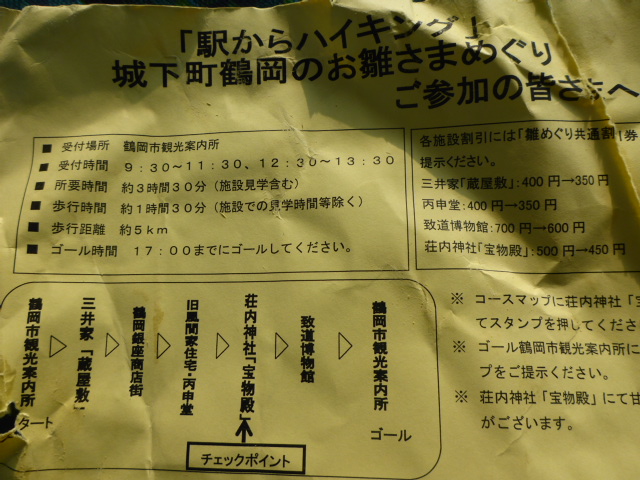 「駅からハイキング」
城下町鶴岡のお雛さまめぐり
ご参加の皆さまへ
■ 受付場所　鶴岡市観光案内所
■ 受付時間　９：３０～１１：３０、１２：３０～１３：３０
■ 所要時間　約３時間３０分（施設見学含む）
■ 歩行時間　約１時間３０分（施設での見学時間等除く）
■ 歩行距離　約５ｋｍ
■ ゴール時間　１７：００までにゴールしてください。
各施設割引には「雛めぐり共通割引券
提示ください。
三井家「蔵屋敷」：400 円→350 円
丙申堂：400 円→350 円
致道博物館：700 円→600 円
荘内神社「宝物殿」：500 円→450 円
鶴岡市観光案内所
▷
三井家「蔵屋敷」
▷
鶴岡銀座商店街
▷
旧風間家住宅・丙申堂
▷
荘内神社「宝物殿」
▷
致道博物館
▷
鶴岡市観光案内所
タート
ゴール
チェックポイント
※ コースマップに荘内神社「宝
てスタンプを押してくださ
※ ゴール鶴岡市観光案内所に
プをご提示ください。
※ 荘内神社「宝物殿」にて甘
がございます。